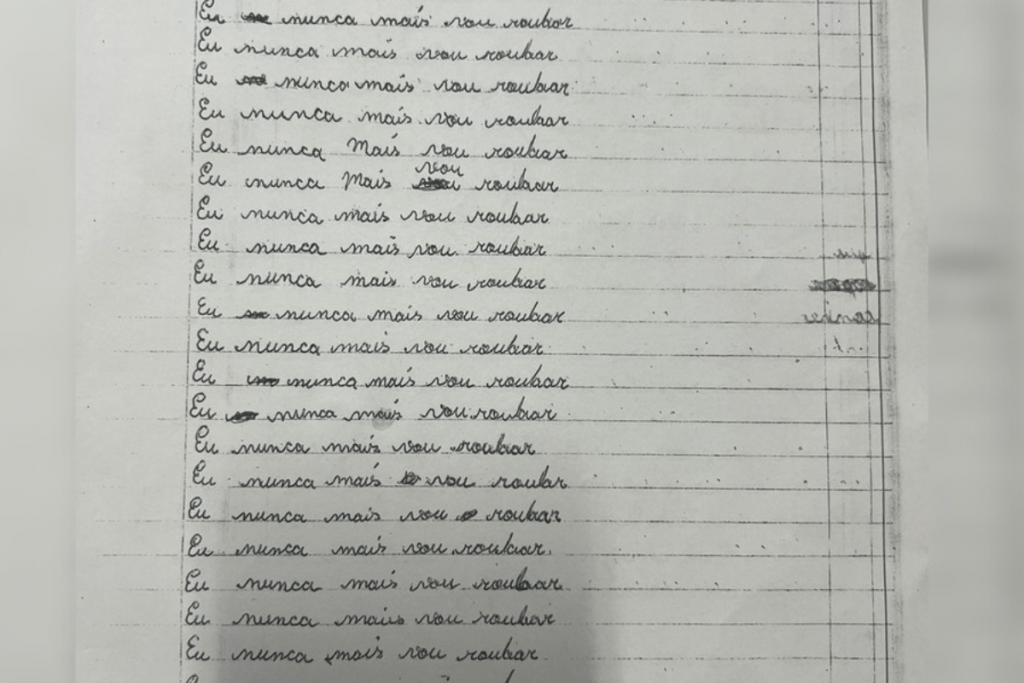 Eu nunca mais vou roubar
Eu nunca mais vou roubar
Eu nunca mais vou roubar
Eu nunca mais vou roubar
Eu nunca Mais vou roubar
Eu nunca Mais vou roubar
Eu nunca mais vou roubar
Eu nunca mais vou roubar
Eu nunca mais vou roubar
Eu nunca mais vou roubar
Eu nunca mais vou roubar
Eu nunca mais vou roubar
Eu nunca mais vou roubar
Eu nunca mais vou roubar
Eu nunca mais vou roubar
Eu nunca mais vou roubar
Eu nunca mais vou roubar.
Eu nunca mais vou roubar
Eu nunca mais vou roubar
Eu nunca mais vou roubar